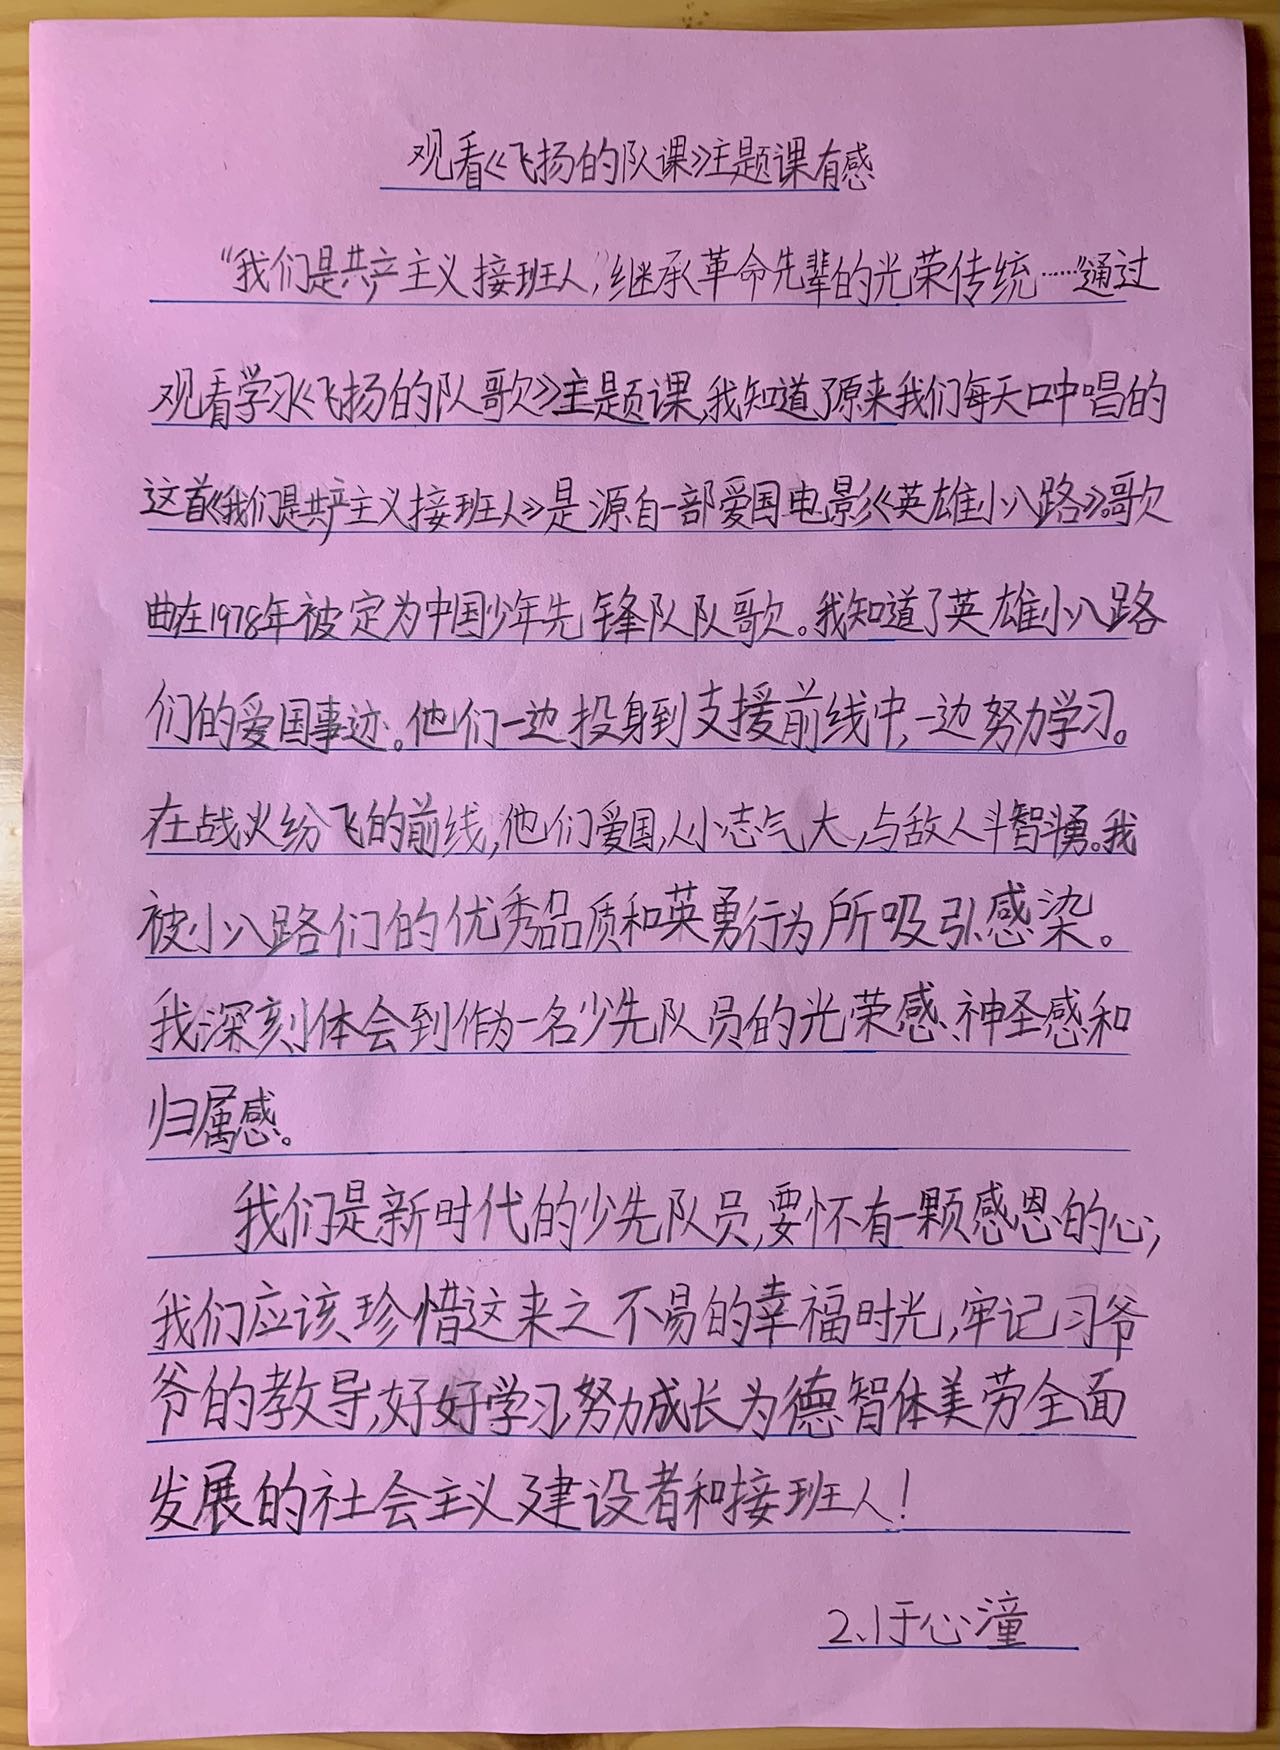 观看《飞扬的队课》主题课有感
“我们是共产主义接班人，继承革命先辈的光荣传统……”通过
观看学习《飞扬的队歌》主题课，我知道了原来我们每天口中唱的
这首《我们是共产主义接班人》是源自一部爱国电影《英雄小八路》。歌
曲在1978年被定为中国少年先锋队队歌。我知道了英雄小八路
们的爱国事迹。他们一边投身到支援前线中，一边努力学习。
在战火纷飞的前线，他们爱国，人小志气大，与敌人斗智斗勇。我
被小八路们的优秀品质和英勇行为所吸引感染。
我深刻体会到作为一名少先队员的光荣感、神圣感和
归属感。
我们是新时代的少先队员，要怀有一颗感恩的心，
我们应该珍惜这来之不易的幸福时光，牢记习爷
爷的教导，好好学习，努力成长为德智体美劳全面
发展的社会主义建设者和接班人！
2、1于心潼